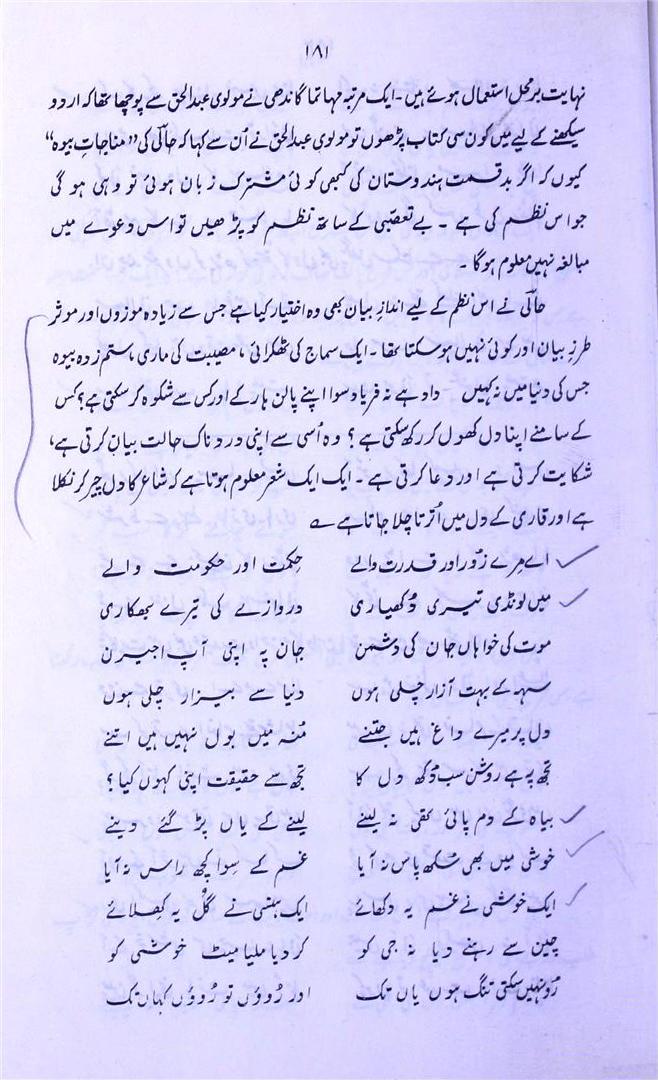 ۱۸۱
نہایت برمحل استعمال ہوئے ہیں۔ ایک مرتبہ مہاتما گاندھی نے مولوی عبدالحق سے پوچھا تھا کہ اردو
سیکھنے کے لیے میں کون سی کتاب پڑھوں تو مولوی عبدالحق نے اُن سے کہا کہ حالیؔ کی "مناجاتِ بیوہ"
کیوں کہ اگر بدقسمت ہندوستان کی کبھی کوئی مشترک زبان ہوئی تو وہی ہوگی
جو اس نظم کی ہے ۔ بے تعصّبی کے ساتھ نظم کو پڑھیں تو اس دعوے میں
مبالغہ نہیں معلوم ہوگا ۔
حالیؔ نے اس نظم کے لیے اندازِ بیان بھی وہ اختیار کیا ہے جس سے زیادہ موزوں اور موثر
طرزِ بیان اور کوئی نہیں ہوسکتا تھا ۔ ایک سماج کی ٹھکرائی ، مصیبت کی ماری ، ستم زدہ بیوہ
جس کی دنیا میں نہ کہیں داد ہے نہ فریاد سوا اپنے پالن ہار کے اور کس سے شکوہ کرسکتی ہے؟ کس
کے سامنے اپنا دل کھول کر رکھ سکتی ہے ؟ وہ اُسی سے اپنی دردناک حالت بیان کرتی ہے ،
شکایت کرتی ہے اور دعا کرتی ہے ۔ ایک ایک شعر معلوم ہوتا ہے کہ شاعر کا دل چیر کر نکلا
ہے اور قاری کے دل میں اُترتا چلا جاتا ہے ؎
اے مِرے زور اور قدرت والے حِکمت اور حکومت والے
میں لونڈی تیری دُکھیاری دروازے کی تیرے بھکاری
موت کی خواہاں جان کی دشمن جان پہ اپنی آپ اجیرن
سہہ کے بہت آزار چلی ہوں دنیا سے بیزار چلی ہوں
دل پر میرے داغ ہیں جتنے مُنہ میں بول نہیں ہیں اتنے
تجھ پہ ہے روشن سب دُکھ دل کا تجھ سے حقیقت اپنی کہوں کیا؟
بیاہ کے دم پائی تھی نہ لینے لینے کے یاں پڑ گئے دینے
خوشی میں بھی سُکھ پاس نہ آیا غم کے سِوا کچھ راس نہ آیا
ایک خوشی نے غم یہ دکھائے ایک ہنسی نے گُل یہ کھلائے
چین سے رہنے دیا نہ جی کو کر دیا ملیامیٹ خوشی کو
رو نہیں سکتی تنگ ہوں یاں تک اور رُوؤں تو رُوؤں کہاں تک